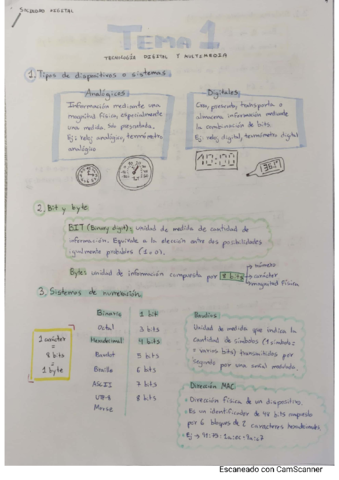 SOLEDAD VEGETAL
TEMA 1
TECNOLOGÍA DIGITAL Y MULTIMEDIA
1. Tipos de dispositivos o sistemas
Analógicos
Información mediante una
magnitud física, especialmente
una medida. No
Ej: reloj analógico, termómetro
analógico
Digitales
Crea, presenta, transporta o
almacena información mediante
la combinación de bits.
Ej: reloj digital, termómetro digital
10:00
2. Bit y byte
BIT (Binary digit): unidad de medida de cantidad de
información. Equivale a la elección entre dos posibilidades
igualmente probables (1 o 0).
Byte: unidad de información compuesta por 8 bits
número
carácter
magnitud física
3. Sistemas de numeración
Binario 1 bit
Octal 3 bits
Hexadecimal 4 bits
Baudot 5 bits
Braille 6 bits
ASCII 7 bits
8 bits
Morse
1 carácter
=
8 bits
=
1 byte
Baudios
Unidad de medida que indica la
cantidad de símbolos (1 símbolo
= varios bits) transmitidos por
segundo por una señal modulada.
Dirección MAC
Dirección física de un dispositivo.
Es un identificador de 48 bits compuesto
por 6 bloques de 2 caracteres hexadecimales.
Escaneado con CamScanner